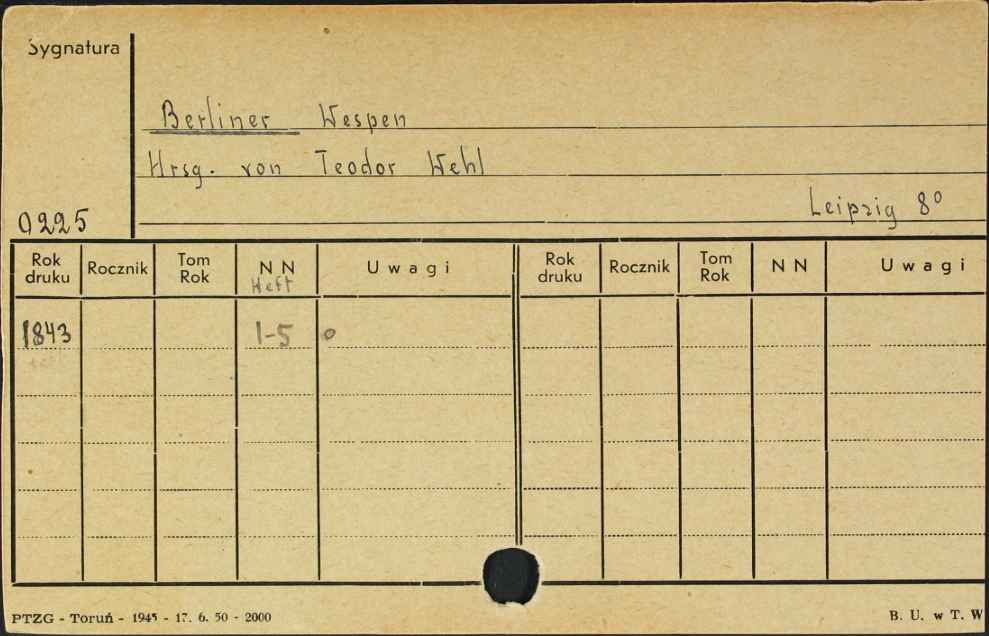 Sygnatura
Berliner Wespen
Hrsg. von Teodor Wehl
Leipzig 8°
0225
Rok druku Rocznik Tom Rok N N Uwagi Rok druku Rocznik Tom Rok N N Uwagi
Heft
1843 1-5 o
PTZG - Toruń - 1945 - 17. 6. 50 - 2000 B. U. w T. W